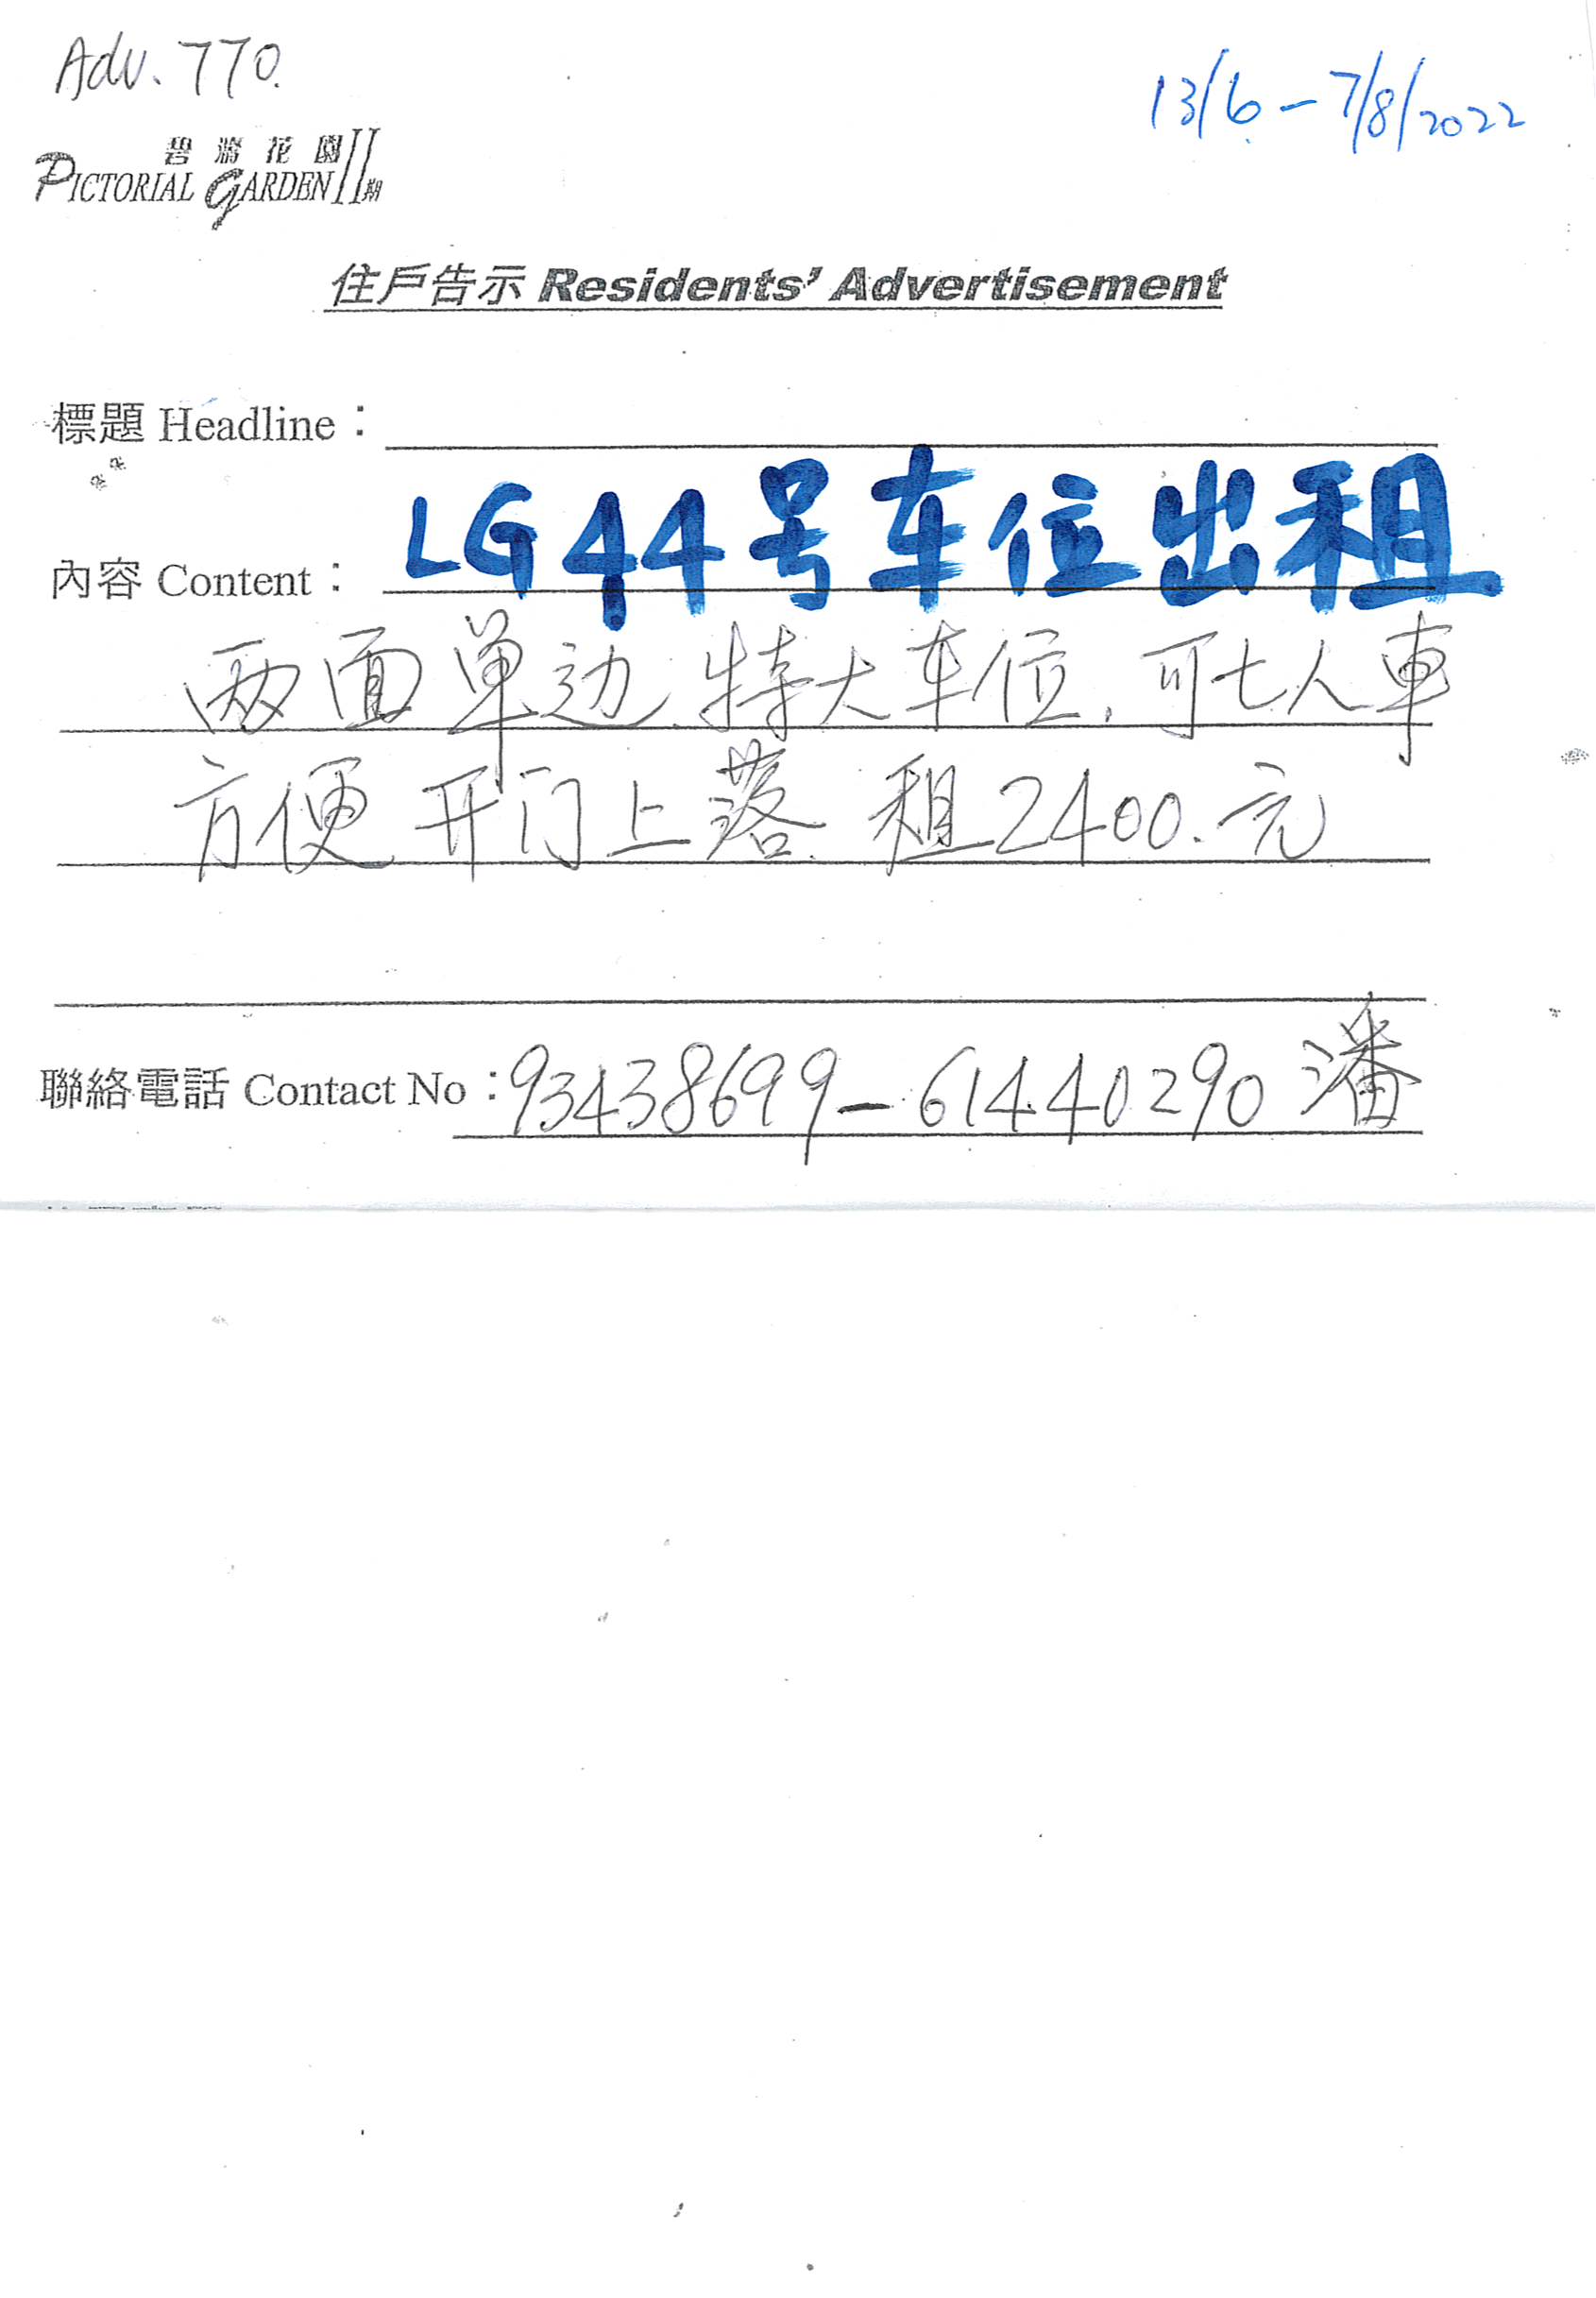 Adv. 770.
13/6 - 7/8/2022
碧濤花園 II 期
PICTORIAL GARDEN
住戶告示 Residents' Advertisement
標題 Headline：
LG44号车位出租
內容 Content：
两面单边.特大车位.可七人車
方便开门上落.租2400.元
聯絡電話 Contact No：93438699-61440290 潘